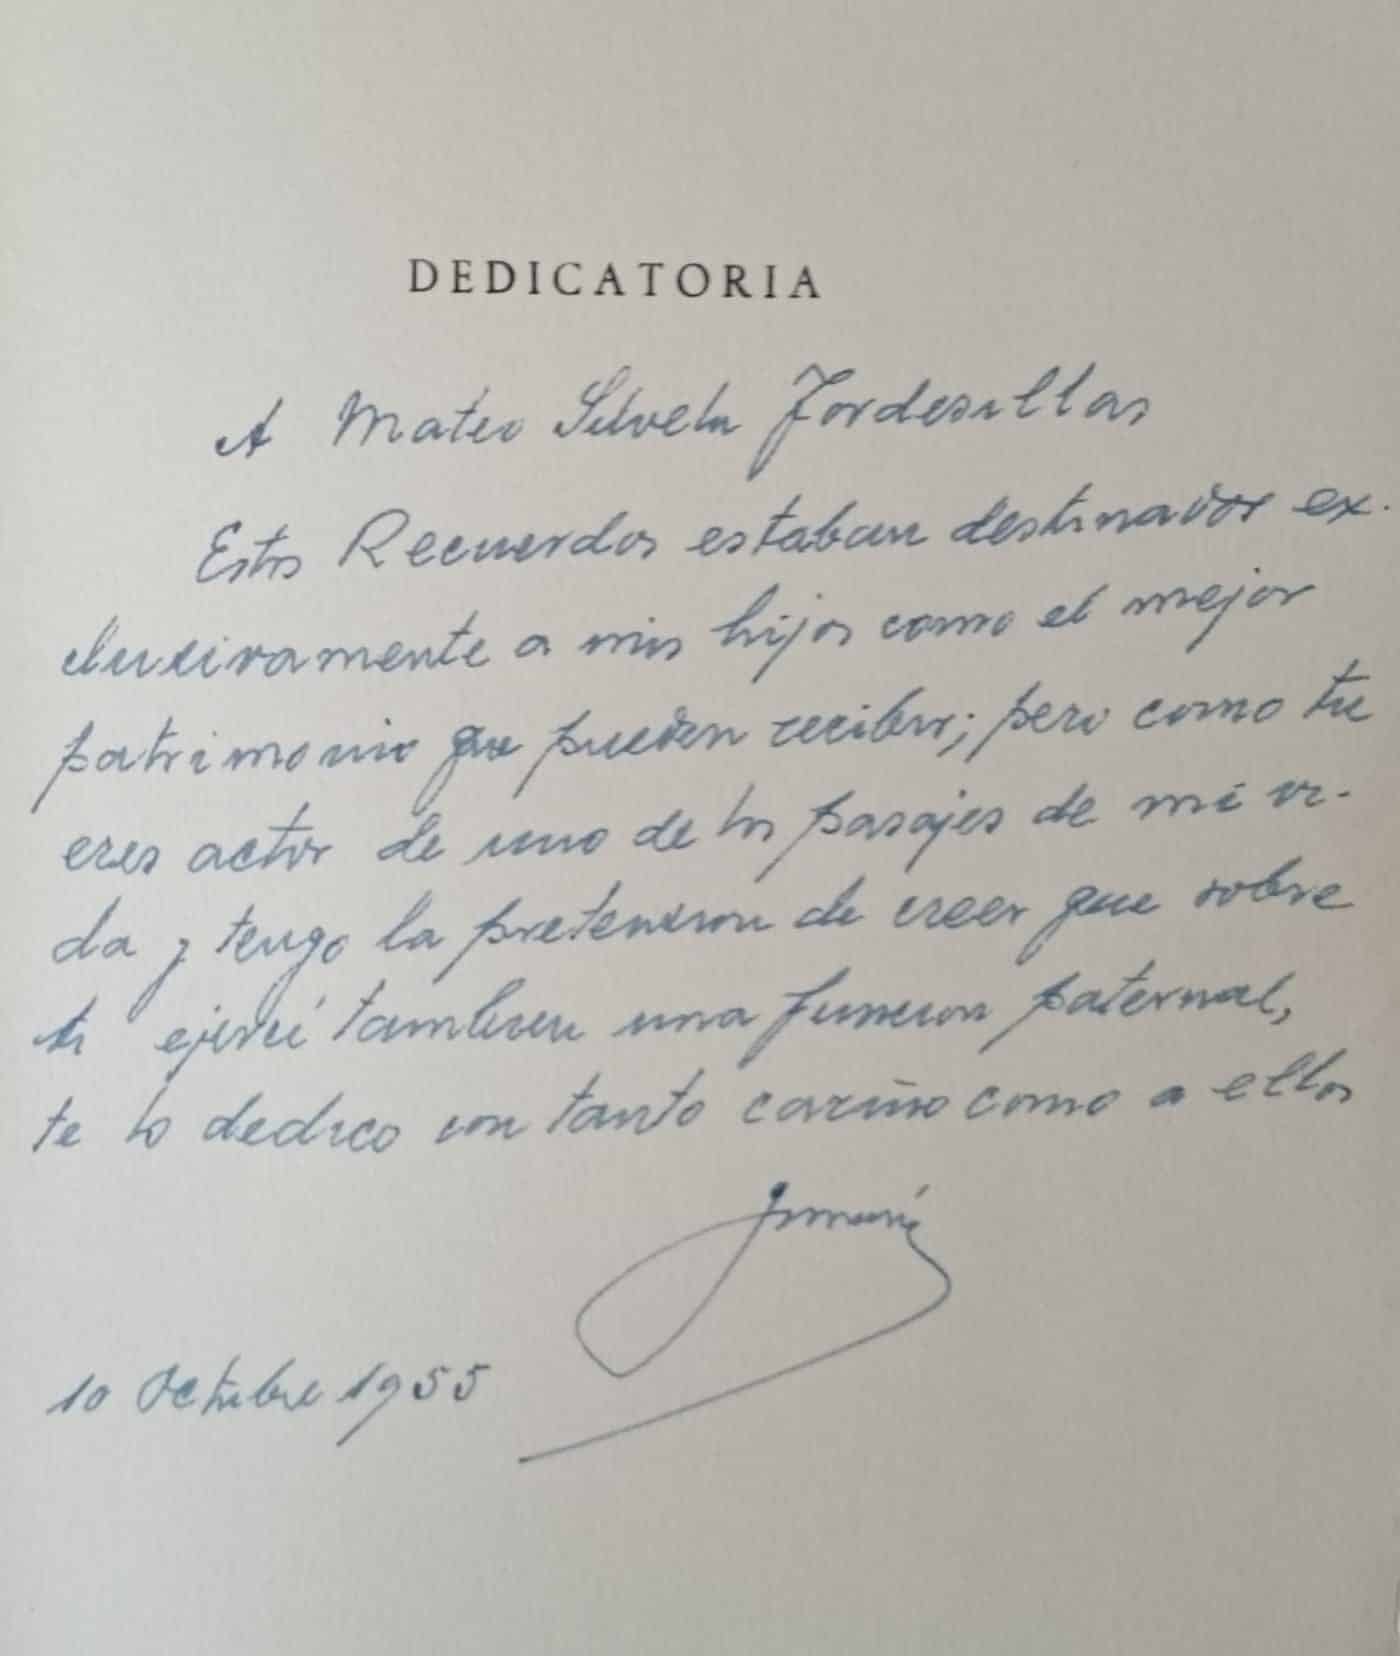 DEDICATORIA
A Mateo Silvela Tordesillas
Estos Recuerdos estaban destinados ex-
clusivamente a mis hijos como el mejor
patrimonio que pueden recibir; pero como tu
eres actor de uno de los pasajes de mi vi-
da y tengo la pretension de creer que sobre
ti ejercí tambien una funcion paternal,
te lo dedico con tanto cariño como a ellos
10 Octubre 1955